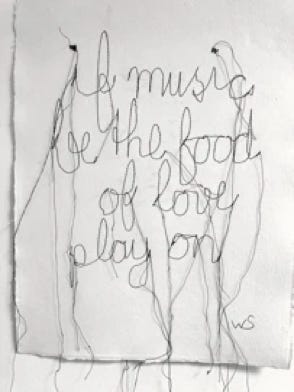 If music
be the food
of love
play on
WS